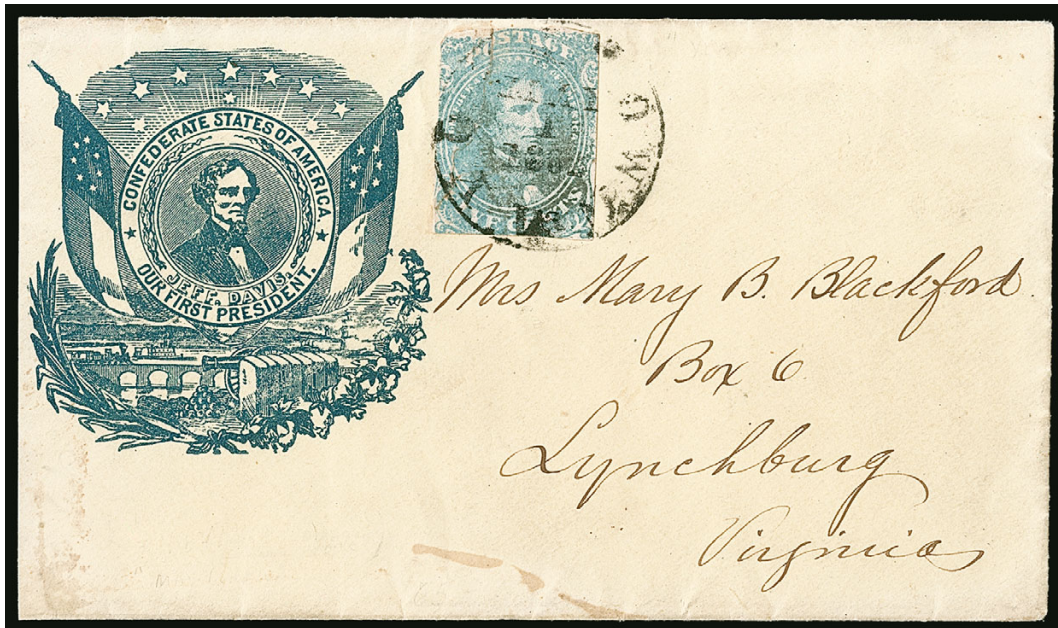 CONFEDERATE STATES OF AMERICA.
JEFF. DAVIS.
OUR FIRST PRESIDENT.
POSTAGE
Mrs Mary B. Blackford
Box 6
Lynchburg
Virginia